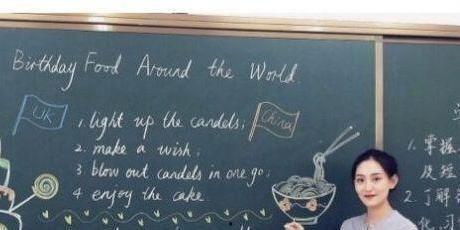 Birthday Food Around the World.
UK
1. light up the candels;
China
2. make a wish;
3 blow out candels in one go;
4 enjoy the cake
1. 掌握
及短
2. 了解
化习